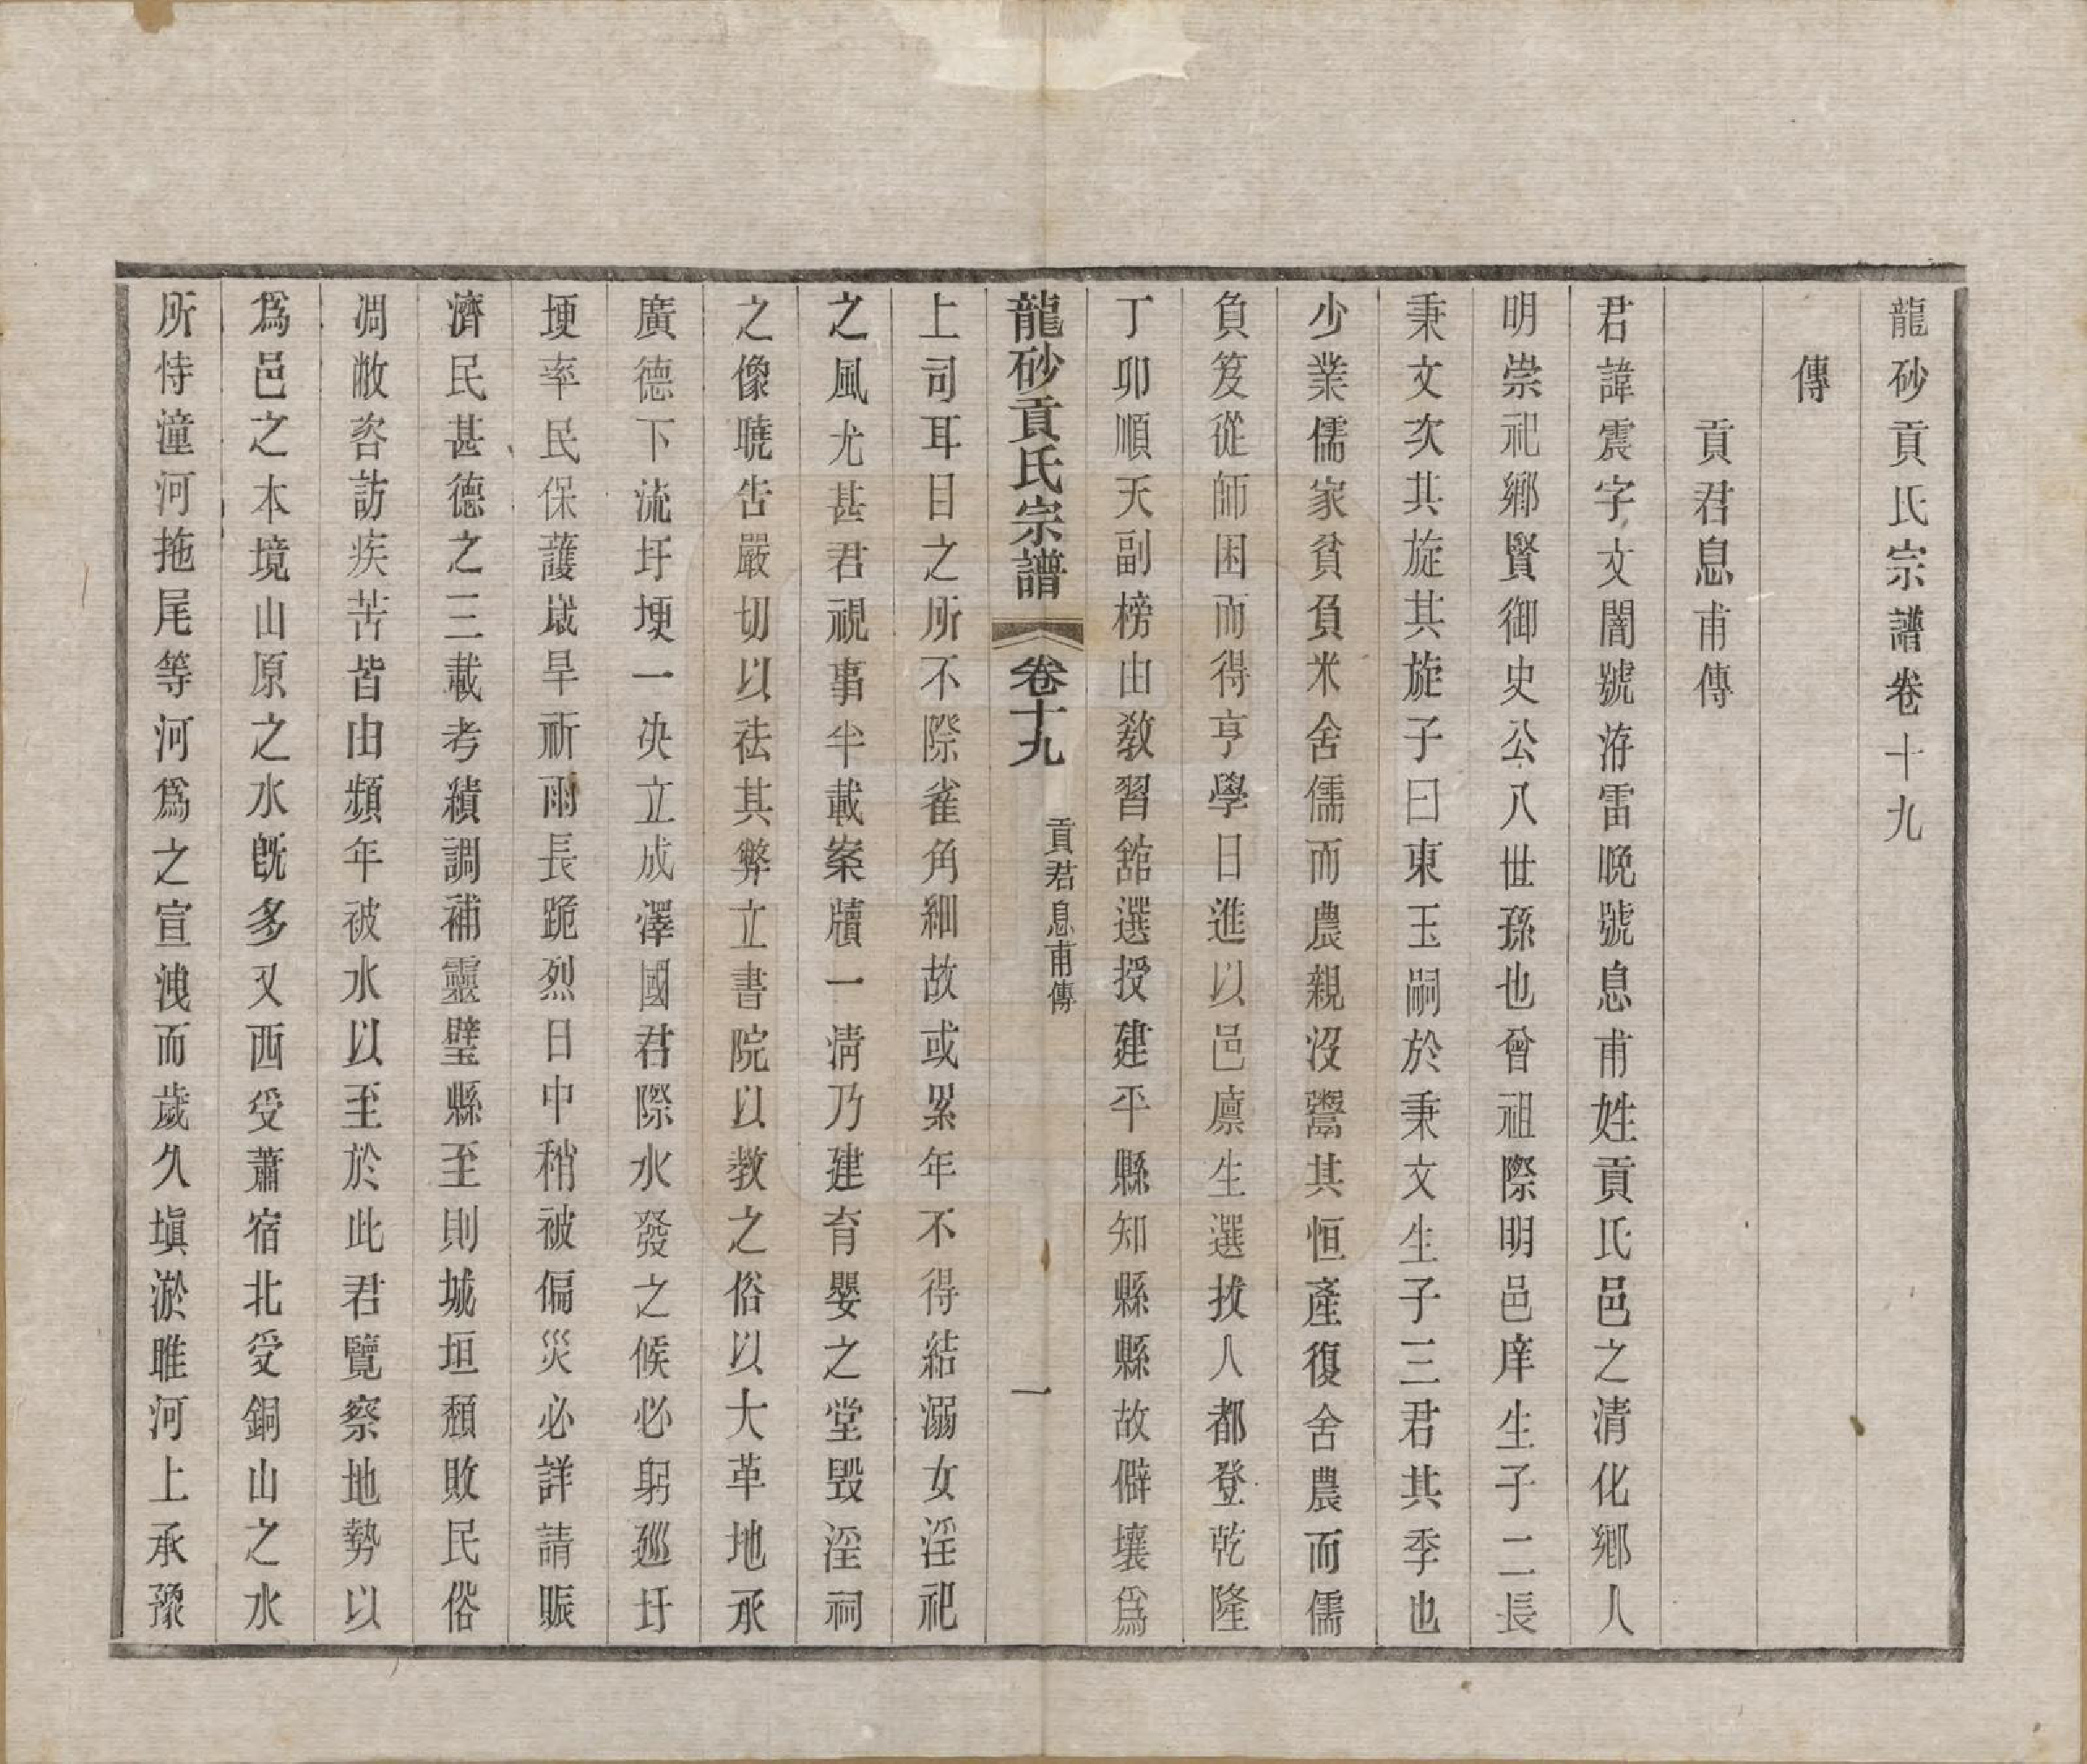 龍砂貢氏宗譜卷十九
傳
貢君息甫傳
君諱震字文闇號洊雷晚號息甫姓貢氏邑之清化鄉人
明崇祀鄉賢御史公八世孫也曾祖際明邑庠生子二長
秉文次其旋其旋子曰東玉嗣於秉文生子三君其季也
少業儒家貧負米舍儒而農親沒鬻其恒產復舍農而儒
負笈從師困而得亨學日進以邑廩生選拔人都登乾隆
丁卯順天副榜由敎習舘選授建平縣知縣縣故僻壤爲
龍砂貢氏宗譜 卷十九 貢君息甫傳 一
上司耳目之所不際雀角細故或累年不得結溺女淫祀
之風尤甚君視事半載案牘一淸乃建育嬰之堂毀淫祠
之像曉告嚴切以祛其弊立書院以教之俗以大革地承
廣德下流圩埂一决立成澤國君際水發之候必躬廵圩
埂率民保護歲旱祈雨長跪烈日中稍被偏災必詳請賑
濟民甚德之三載考績調補靈璧縣至則城垣頹敗民俗
凋敝咨訪疾苦皆由頻年被水以至於此君覽察地勢以
爲邑之本境山原之水旣多又西受蕭宿北受銅山之水
所恃潼河拖尾等河爲之宣洩而歲久塡淤睢河上承豫